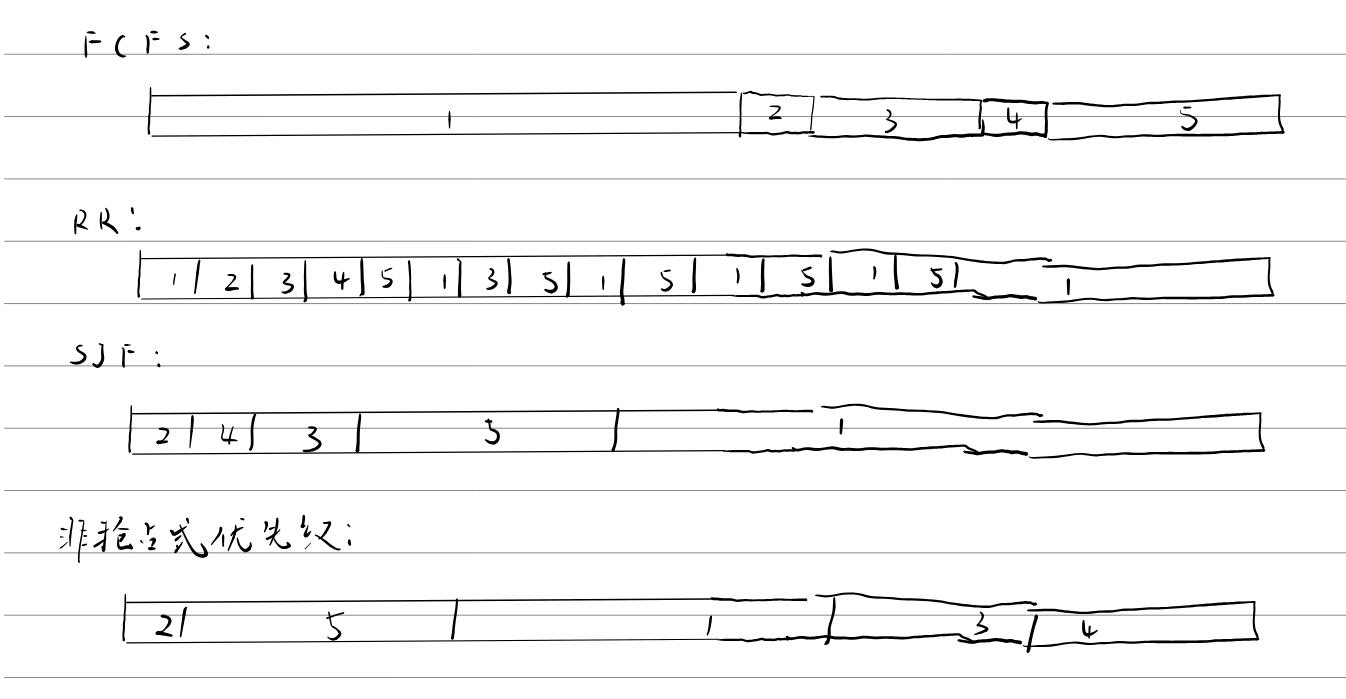 FCFS:
1 2 3 4 5
RR:
1 2 3 4 5 1 3 5 1 5 1 5 1 5 1
SJF:
2 4 3 5 1
非抢占式优先级:
2 5 1 3 4